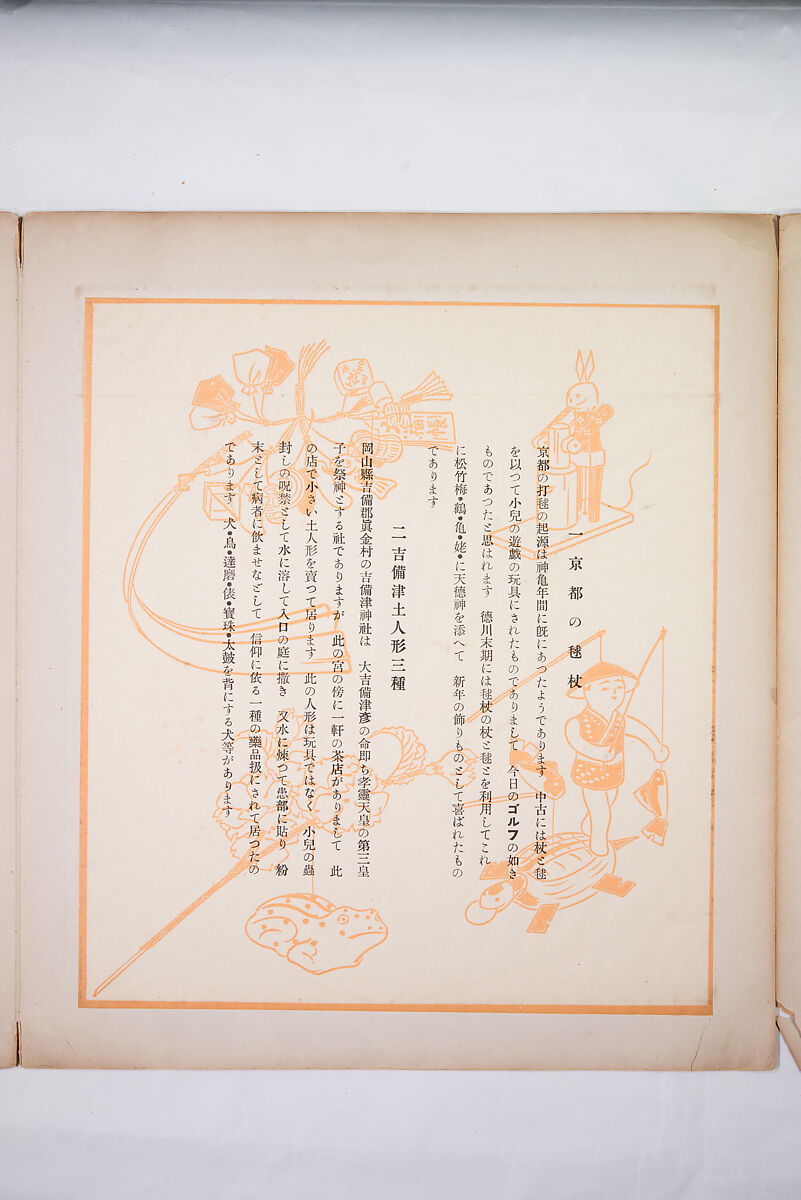 一 京都の毬杖
京都の打毬の起源は神亀年間に旣にあつたようであります 中古には杖と毬
を以つて小兒の遊戯の玩具にされたものでありまして 今日のゴルフの如き
ものであつたと思はれます 德川末期には毬杖の杖と毬とを利用してこれ
に松竹梅・鶴・亀・姥・に天德神を添へて 新年の飾りものとして喜ばれたもの
であります
二 吉備津土人形三種
岡山縣吉備郡眞金村の吉備津神社は 大吉備津彥の命即ち孝靈天皇の第三皇
子を祭神とする社でありますが 此の宮の傍に一軒の茶店がありまして 此
の店で小さい土人形を賣つて居ります 此の人形は玩具ではなく 小兒の蟲
封しの呪禁として水に溶して入口の庭に撒き 又水に煉つて患部に貼り 粉
末として病者に飲ませなどして 信仰に依る一種の藥品扱にされて居つたの
であります 犬・鳥・達磨・俵・寳珠・太鼓を背にする犬等があります